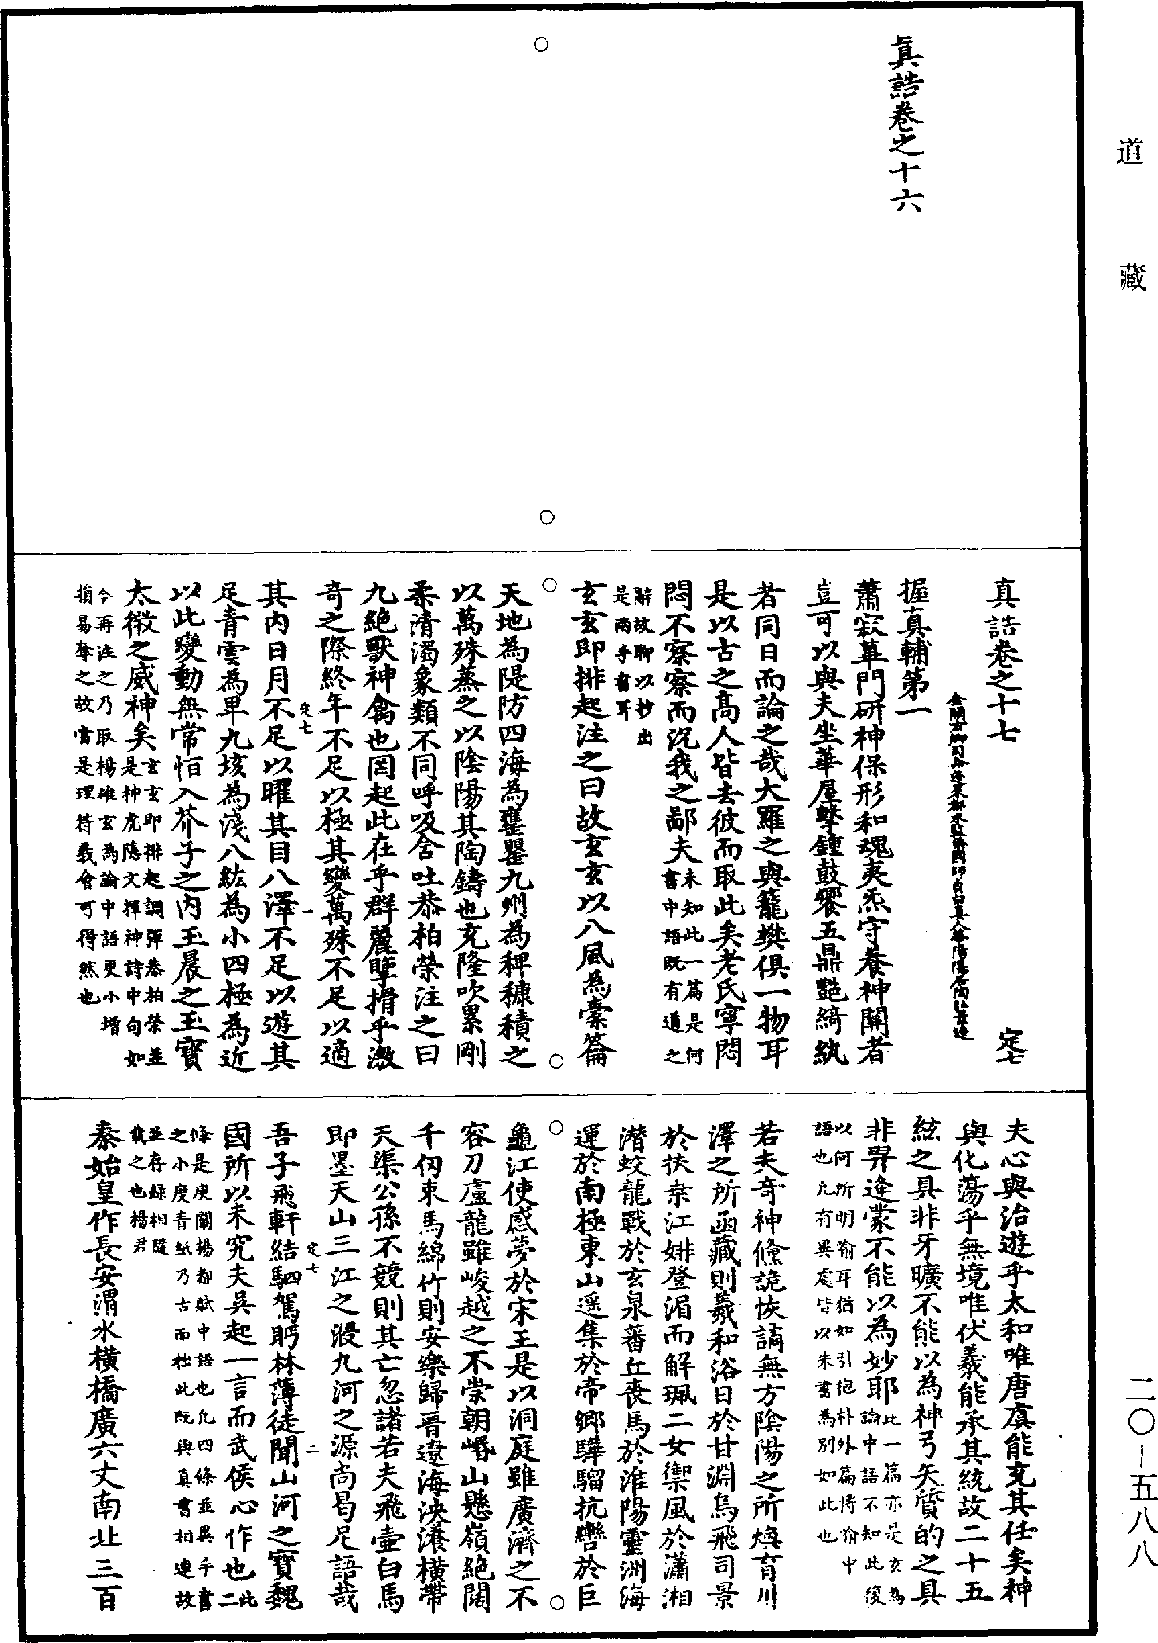 道藏
真誥卷之十六
真誥卷之十七
定七
握真輔第一
蕭寂蓽門研神保形和魂夷炁守養神關者
豈可以與夫坐華屋擊鐘鼓饗五鼎艷綺紈
者同日而論之哉大羅之與籠樊俱一物耳
是以古之高人皆去彼而取此矣老氏寧悶
悶不察察而況我之鄙夫未知此一篇是何書中語既有道之
解故聊以抄出是兩手書耳
玄玄即排起注之曰故玄玄以八風為橐籥
天地為隄防四海為甕罌九州為稗糠積之
以萬殊蒸之以陰陽其陶鑄也充隆吹累剛
柔清濁象類不同呼吸含吐恭柏榮注之曰
九絕獸神禽也罔起此在乎群麗孽揹乎激
奇之際終年不足以極其變萬殊不足以適
其內日月不足以曜其目八澤不足以遊其
足青雲為卑九垓為淺八紘為小四極為近
以此變動無常怕入芥子之內玉晨之玉寶
太微之威神矣玄玄即排起調彈恭柏榮並是神虎隱文揮神詩中句如
今再注之乃取楊雄玄為論中語更小增損易奪之故當是理符義會可得然也
定七 一
夫心與治遊乎太和唯唐虞能充其任矣神
與化蕩乎無境唯伏羲能承其統故二十五
絃之具非牙曠不能以為神弓矢質的之具
非羿逢蒙不能以為妙耶此一篇亦是玄為論中語不知此後
以何所明喻耳猶如引抱朴外篇博喻中語也凡有異處皆以朱書為別如此也
若夫奇神儵詭恢譎無方陰陽之所煥育川
澤之所函藏則羲和浴日於甘淵烏飛司景
於扶桑江婔登湄而解珮二女禦風於瀟湘
潛蛟龍戰於玄泉蕃丘喪馬於淮陽靈洲海
運於南極東山遥集於帝鄉驊騮抗轡於巨
龜江使感夢於宋王是以洞庭雖廣濟之不
容刀廬龍雖峻越之不崇朝嶓山懸嶺絕閣
千仞束馬綿竹則安樂歸晉遼海泱瀁橫帶
天渠公孫不競則其亡忽諸若夫飛壺白馬
即墨天山三江之濊九河之源尚曷足語哉
吾子飛軒結駟駕眄林薄徒聞山河之寶魏
國所以未究夫吳起一言而武侯心作也此二
條是庾闡楊都賦中語也凡四條並異手書之小度青紙乃古而拙此既與真書相連故
並存錄相隨載之也楊君
秦始皇作長安渭水橫橋廣六丈南北三百
定七 二
二〇-五八八